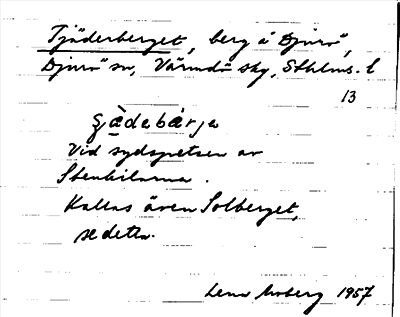 Tjäderberget, berg å Djurö,
Djurö sn, Värmdö skg, Sthlms. l
13
Vid sydspetsen av
Stenkilarna.
Kallas även Solberget,
se detta.
Lena Moberg 1957